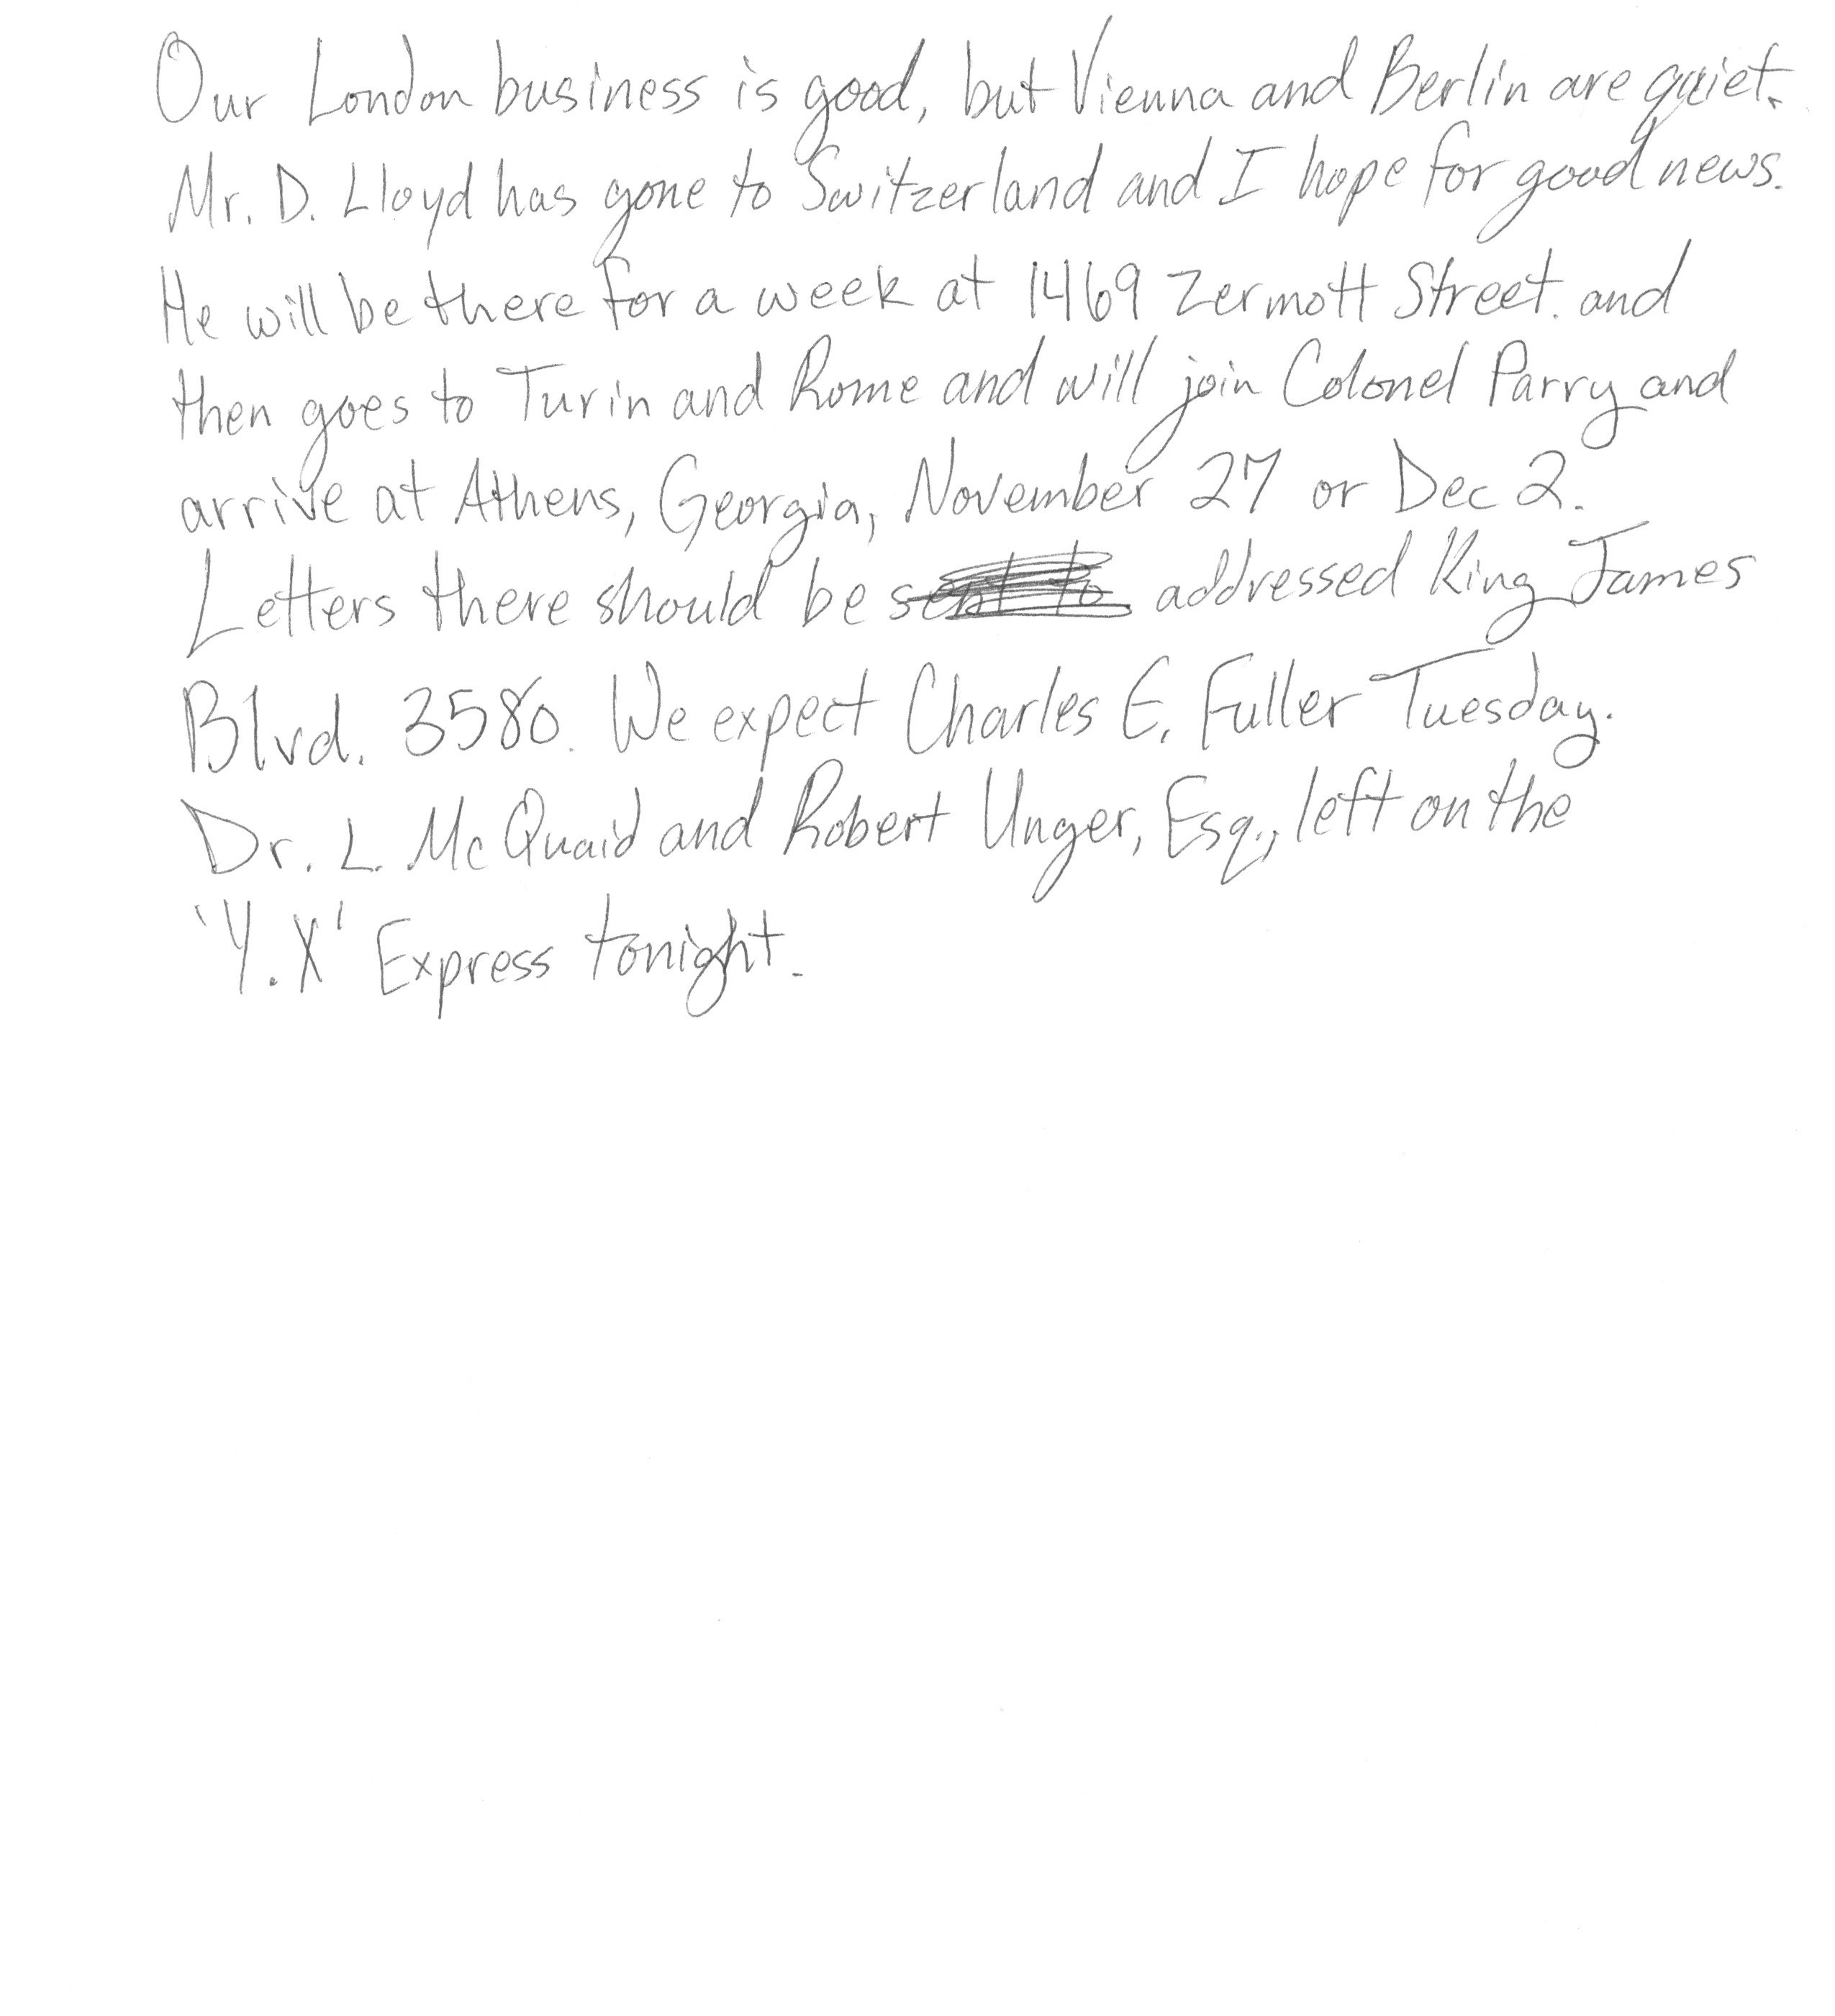 Our London business is good, but Vienna and Berlin are quiet.
Mr. D. Lloyd has gone to Switzerland and I hope for good news.
He will be there for a week at 1469 Zermott Street. and
then goes to Turin and Rome and will join Colonel Parry and
arrive at Athens, Georgia, November 27 or Dec 2.
Letters there should be addressed King James
Blvd. 3580. We expect Charles E. Fuller Tuesday.
Dr. L. McQuaid and Robert Unger, Esq., left on the
'Y.X' Express tonight.